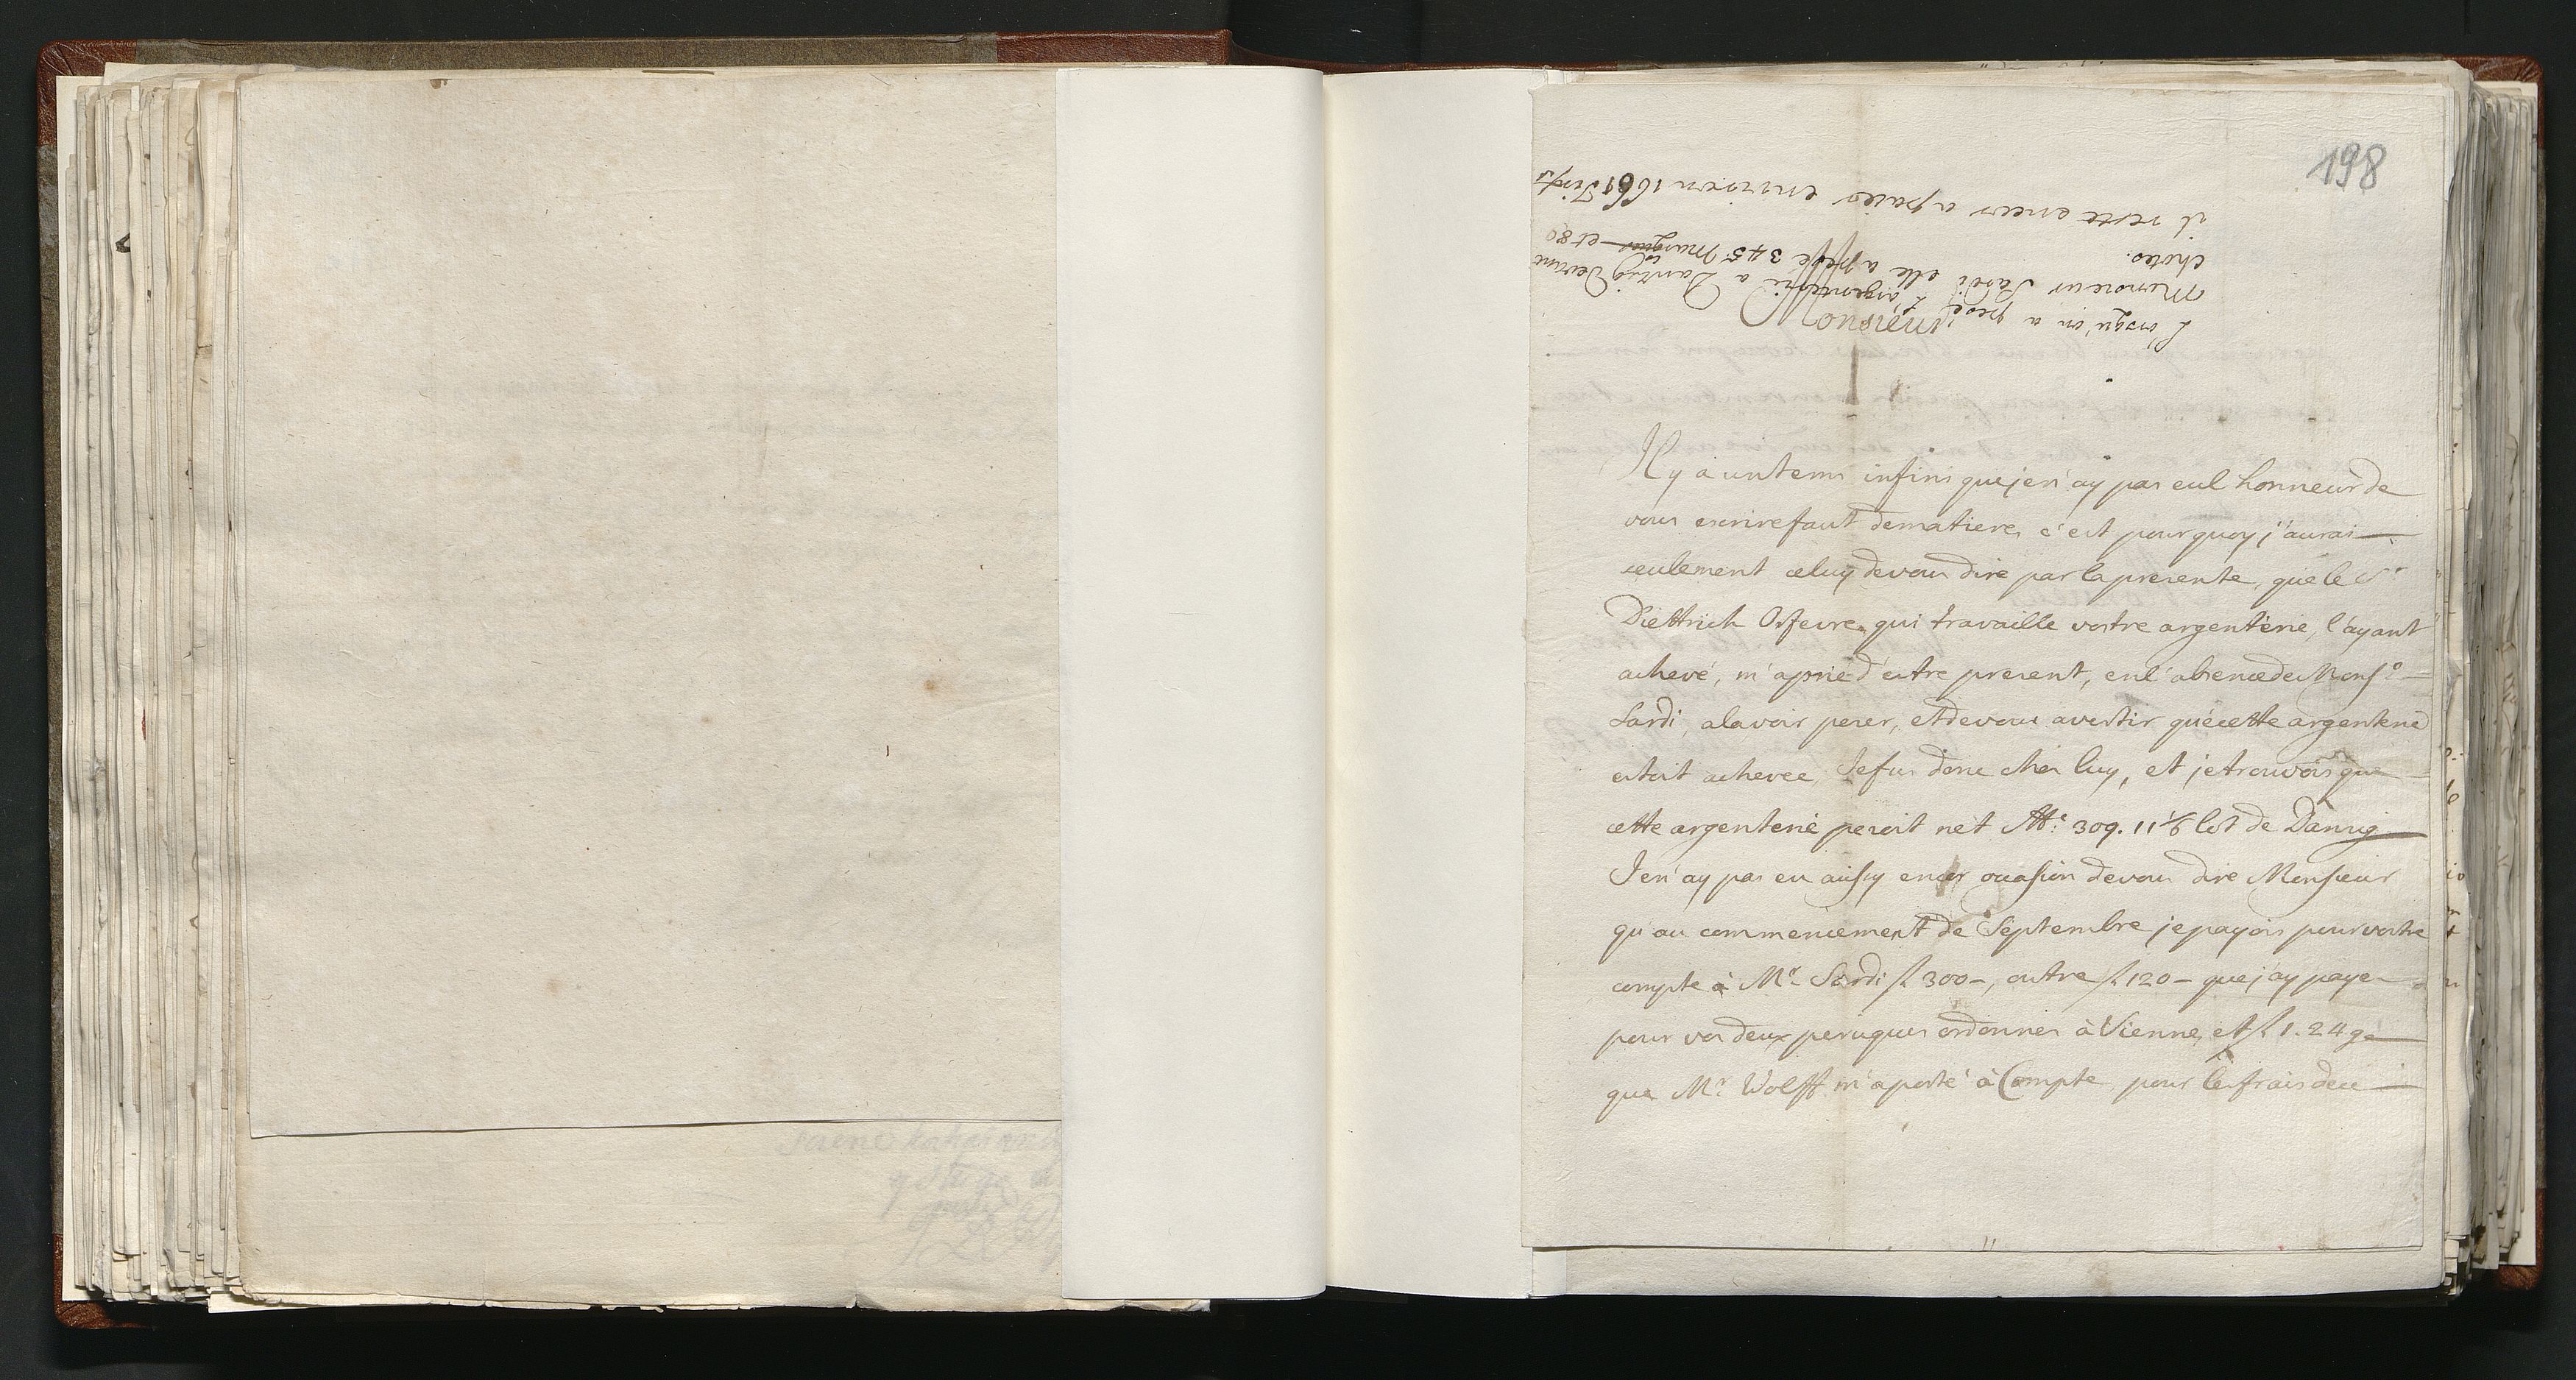 198
Lorsqu'on a pesé L'argenterie a Dantzig devant
Monsieur Sardi elle a pesé 345 Marques et 8
chotes.
il reste encor a paier environ 1661
Monsieur
Il y a un tems infini que je n'ay pas eu l'honneur de
vous escrire faut de matiere, c'est pourquoy j'aurai
seulement celuy de vous dire par la presente, que le Sr
Diettrich Orfevre qui travaille vostre argenterie, l'ayant
achevé, m'a prié d'estre present, en l'absence de Monsr
Sardi, a la voir peser, et de vous avertir que cette argenterie
estoit achevee, Je fus donc chez luy, et je trouvois que
cette argenterie pesoit net 309. 11 lot de Danzig
Je n'ay pas eu aussy encor occasion de vous dire Monsieur
qu'au commencement de Septembre je payois pour vostre
compte à Mr Sardi f 300-, outre f 120- que j'ay payer
pour vos deux peruques ordonnes à Vienne, et f 1.24 g
que Mr Wolff m'a porté à Compte pour les frais de ce